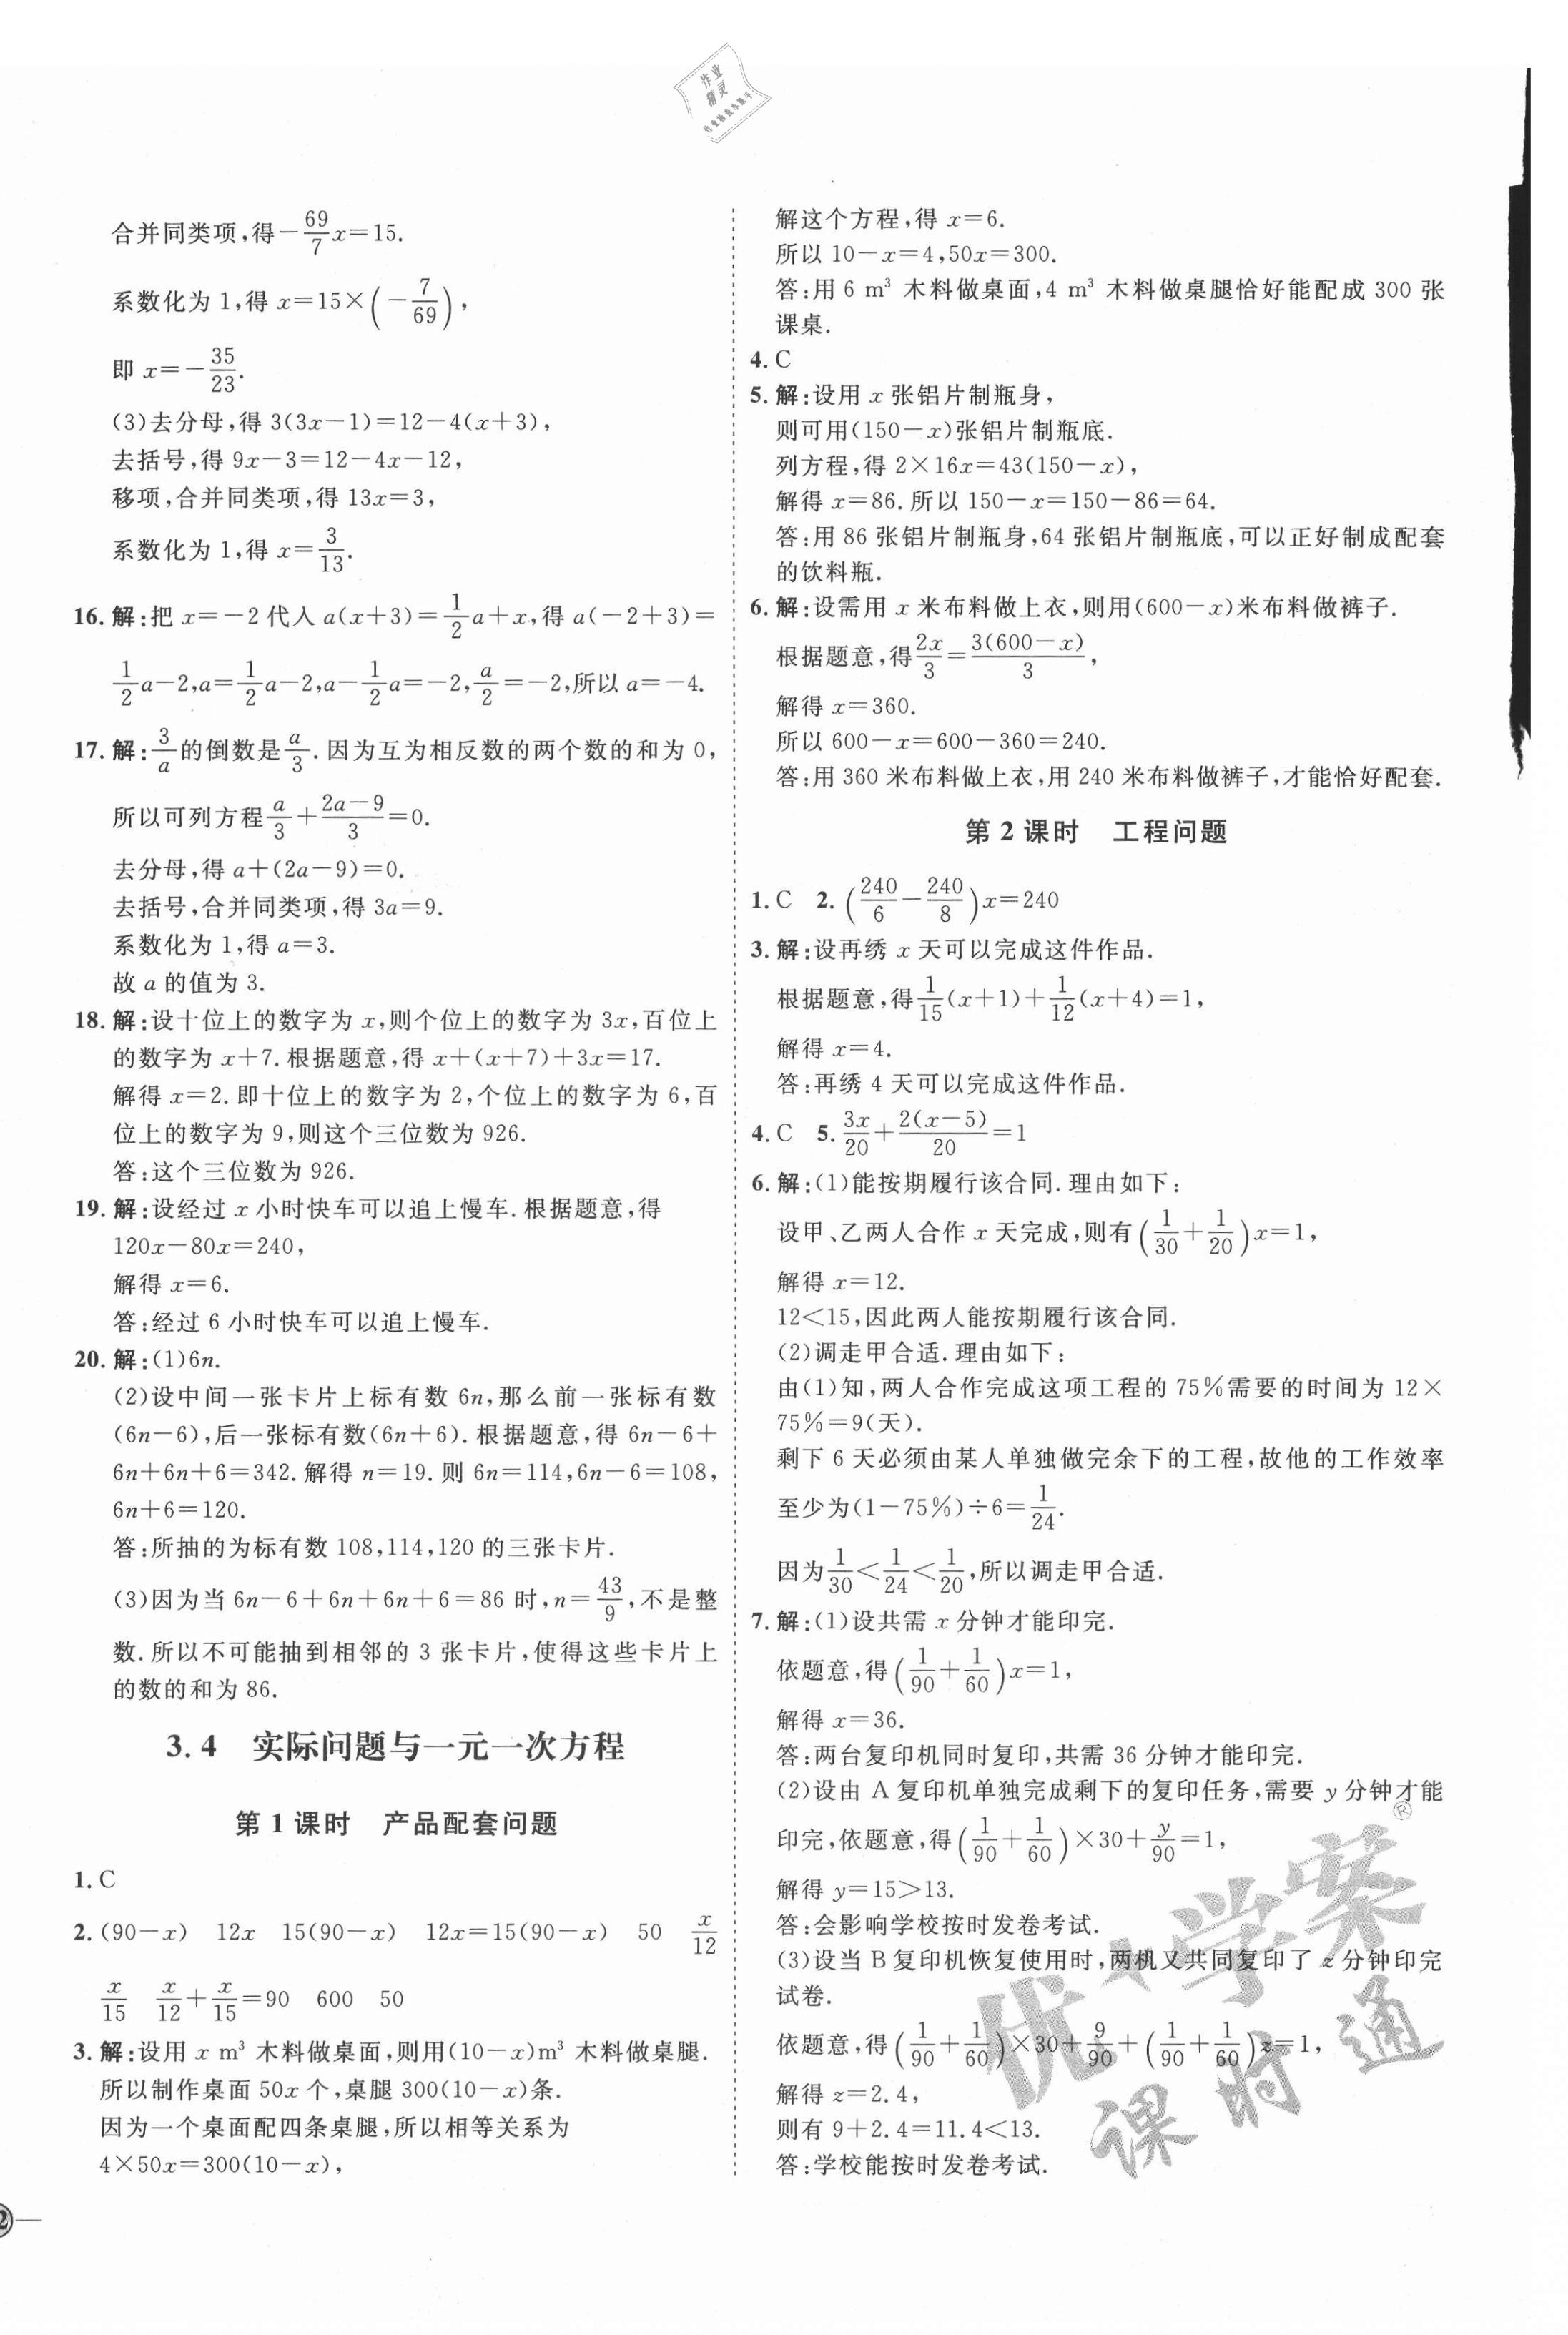 作业
精灵
合并同类项,得-69/7x=15.
系数化为1,得 x=15×(-7/69),
即 x=-35/23.
(3)去分母,得 3(3x-1)=12-4(x+3),
去括号,得 9x-3=12-4x-12,
移项,合并同类项,得 13x=3,
系数化为1,得 x=3/13.
16. 解:把 x=-2代入 a(x+3)=1/2a+x,得 a(-2+3)=
1/2a-2,a=1/2a-2,a-1/2a=-2,a/2=-2,所以 a=-4.
17. 解:3/a的倒数是a/3.因为互为相反数的两个数的和为 0,
所以可列方程a/3+(2a-9)/3=0.
去分母,得 a+(2a-9)=0.
去括号,合并同类项,得 3a=9.
系数化为1,得 a=3.
故 a 的值为 3.
18. 解:设十位上的数字为 x,则个位上的数字为 3x,百位上
的数字为 x+7.根据题意,得 x+(x+7)+3x=17.
解得 x=2.即十位上的数字为 2,个位上的数字为 6,百
位上的数字为 9,则这个三位数为 926.
答:这个三位数为 926.
19. 解:设经过 x 小时快车可以追上慢车.根据题意,得
120x-80x=240,
解得 x=6.
答:经过 6 小时快车可以追上慢车.
20. 解:(1)6n.
(2)设中间一张卡片上标有数 6n,那么前一张标有数
(6n-6),后一张标有数(6n+6).根据题意,得 6n-6+
6n+6n+6=342.解得 n=19.则 6n=114,6n-6=108,
6n+6=120.
答:所抽的为标有数 108,114,120 的三张卡片.
(3)因为当 6n-6+6n+6n+6=86 时,n=43/9,不是整
数.所以不可能抽到相邻的 3 张卡片,使得这些卡片上
的数的和为 86.
3.4 实际问题与一元一次方程
第1课时 产品配套问题
1. C
2. (90-x) 12x 15(90-x) 12x=15(90-x) 50 x/12
x/15 x/12+x/15=90 600 50
3. 解:设用 x m³ 木料做桌面,则用(10-x)m³ 木料做桌腿.
所以制作桌面 50x 个,桌腿 300(10-x)条.
因为一个桌面配四条桌腿,所以相等关系为
4×50x=300(10-x),
2
解这个方程,得 x=6.
所以 10-x=4,50x=300.
答:用 6 m³ 木料做桌面,4 m³ 木料做桌腿恰好能配成 300 张
课桌.
4. C
5. 解:设用 x 张铝片制瓶身,
则可用(150-x)张铝片制瓶底.
列方程,得 2×16x=43(150-x),
解得 x=86.所以 150-x=150-86=64.
答:用 86 张铝片制瓶身,64 张铝片制瓶底,可以正好制成配套
的饮料瓶.
6. 解:设需用 x 米布料做上衣,则用(600-x)米布料做裤子.
根据题意,得2x/3=3(600-x)/3,
解得 x=360.
所以 600-x=600-360=240.
答:用 360 米布料做上衣,用 240 米布料做裤子,才能恰好配套.
第2课时 工程问题
1. C 2. (240/6-240/8)x=240
3. 解:设再绣 x 天可以完成这件作品.
根据题意,得1/15(x+1)+1/12(x+4)=1,
解得 x=4.
答:再绣 4 天可以完成这件作品.
4. C 5. 3x/20+2(x-5)/20=1
6. 解:(1)能按期履行该合同.理由如下:
设甲、乙两人合作 x 天完成,则有(1/30+1/20)x=1,
解得 x=12.
12<15,因此两人能按期履行该合同.
(2)调走甲合适.理由如下:
由(1)知,两人合作完成这项工程的 75%需要的时间为 12×
75%=9(天).
剩下 6 天必须由某人单独做完余下的工程,故他的工作效率
至少为(1-75%)÷6=1/24.
因为1/30<1/24<1/20,所以调走甲合适.
7. 解:(1)设共需 x 分钟才能印完.
依题意,得(1/90+1/60)x=1,
解得 x=36.
答:两台复印机同时复印,共需 36 分钟才能印完.
(2)设由 A 复印机单独完成剩下的复印任务,需要 y 分钟才能
印完,依题意,得(1/90+1/60)×30+y/90=1,
解得 y=15>13.
答:会影响学校按时发卷考试.
(3)设当 B 复印机恢复使用时,两机又共同复印了 z 分钟印完
试卷.
依题意,得(1/90+1/60)×30+9/90+(1/90+1/60)z=1,
解得 z=2.4,
则有 9+2.4=11.4<13.
答:学校能按时发卷考试.
优+学案®
课时通